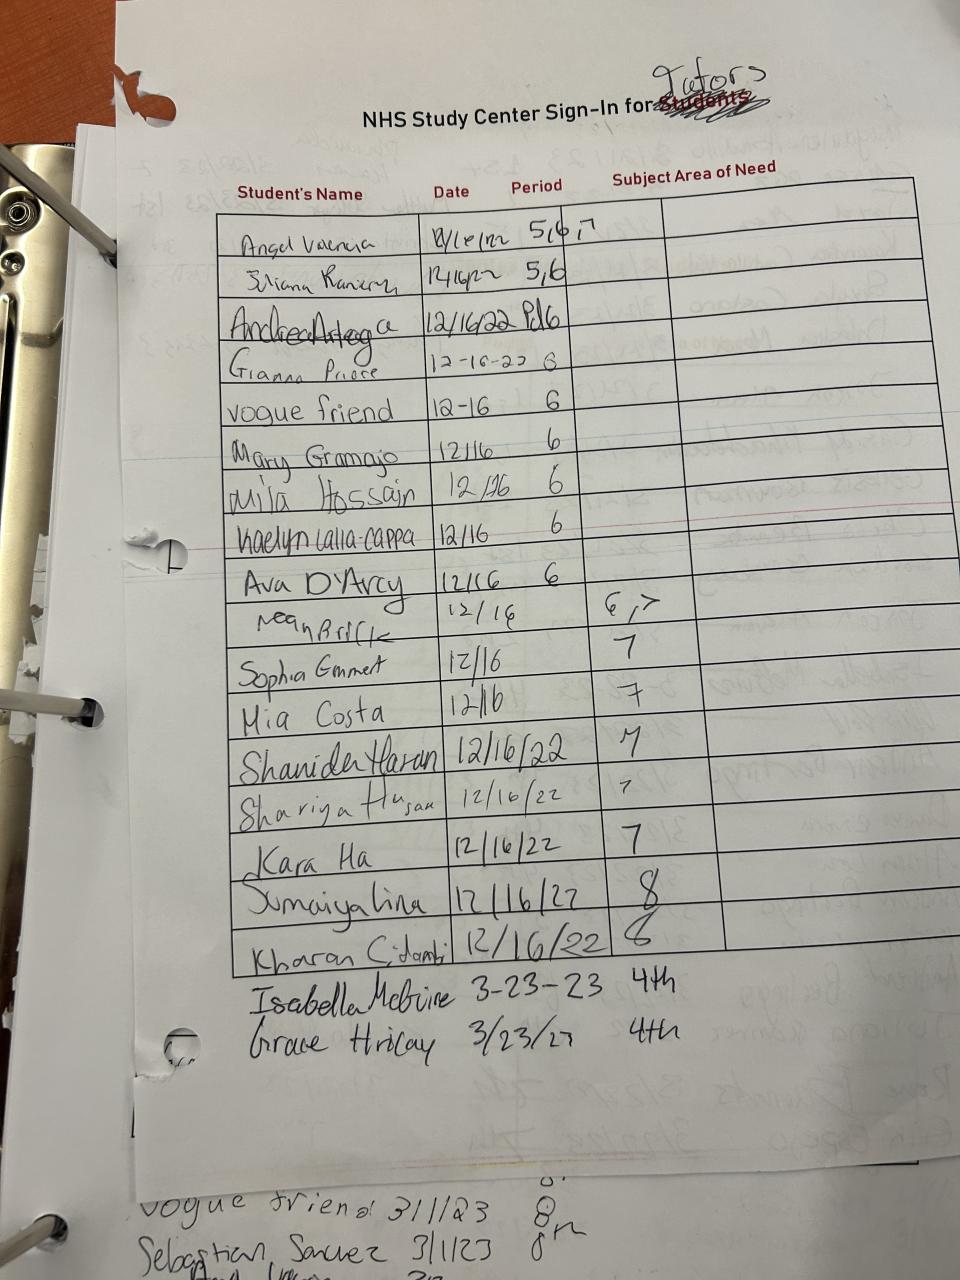 Tutors
NHS Study Center Sign-In for Students
Student's Name Date Period Subject Area of Need
Angel Valencia 12/16/22 5,6,7
12/16/22 5,6
Andrea Arteaga 12/16/22 Pd6
Gianna Priore 12-16-22 6
vogue friend 12-16 6
Mary Gramajo 12/16 6
Mila Hossain 12/16 6
Kaelyn Lalla-Cappa 12/16 6
Ava D'Arcy 12/16 6
12/16 6,7
Sophia Emmert 12/16 7
Mia Costa 12/16 7
12/16/22 7
Shariya 12/16/22 7
Kara Ha 12/16/22 7
Sumaiya Lina 12/16/22 8
Kharan Cidambi 12/16/22 8
Isabella McGuire 3-23-23 4th
Grace Hricay 3/23/23 4th
vogue friend 3/1/23 8
Sebastian 3/1/23 8